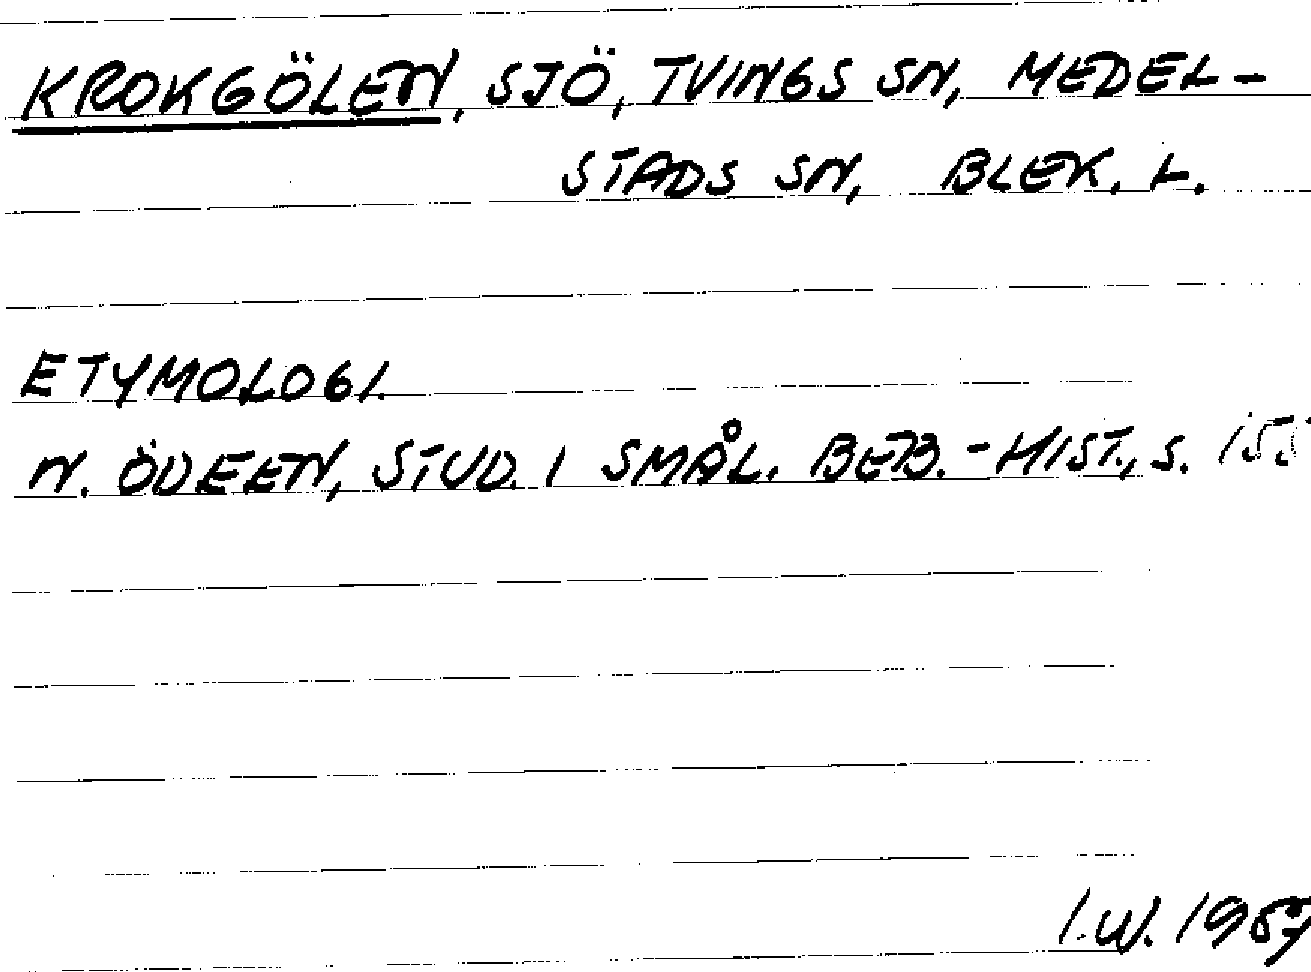 KROKGÖLEN, SJÖ, TVINGS SN, MEDEL-
STADS SN, BLEK. L.
ETYMOLOGI.
N. ÖDEEN, STUD. I SMÅL. BEB.-HIST., S. 155
I.W.